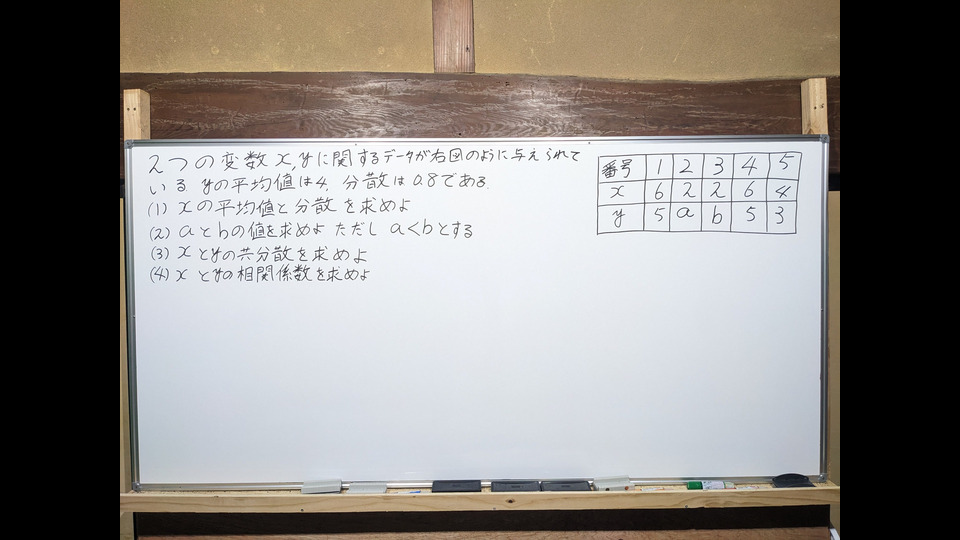 2つの変数x,yに関するデータが右図のように与えられて
いる yの平均値は4, 分散は0.8である.
(1) xの平均値と分散を求めよ
(2) aとbの値を求めよ ただし a<bとする
(3) xとyの共分散を求めよ
(4) xとyの相関係数を求めよ
番号 1 2 3 4 5
x 6 2 2 6 4
y 5 a b 5 3